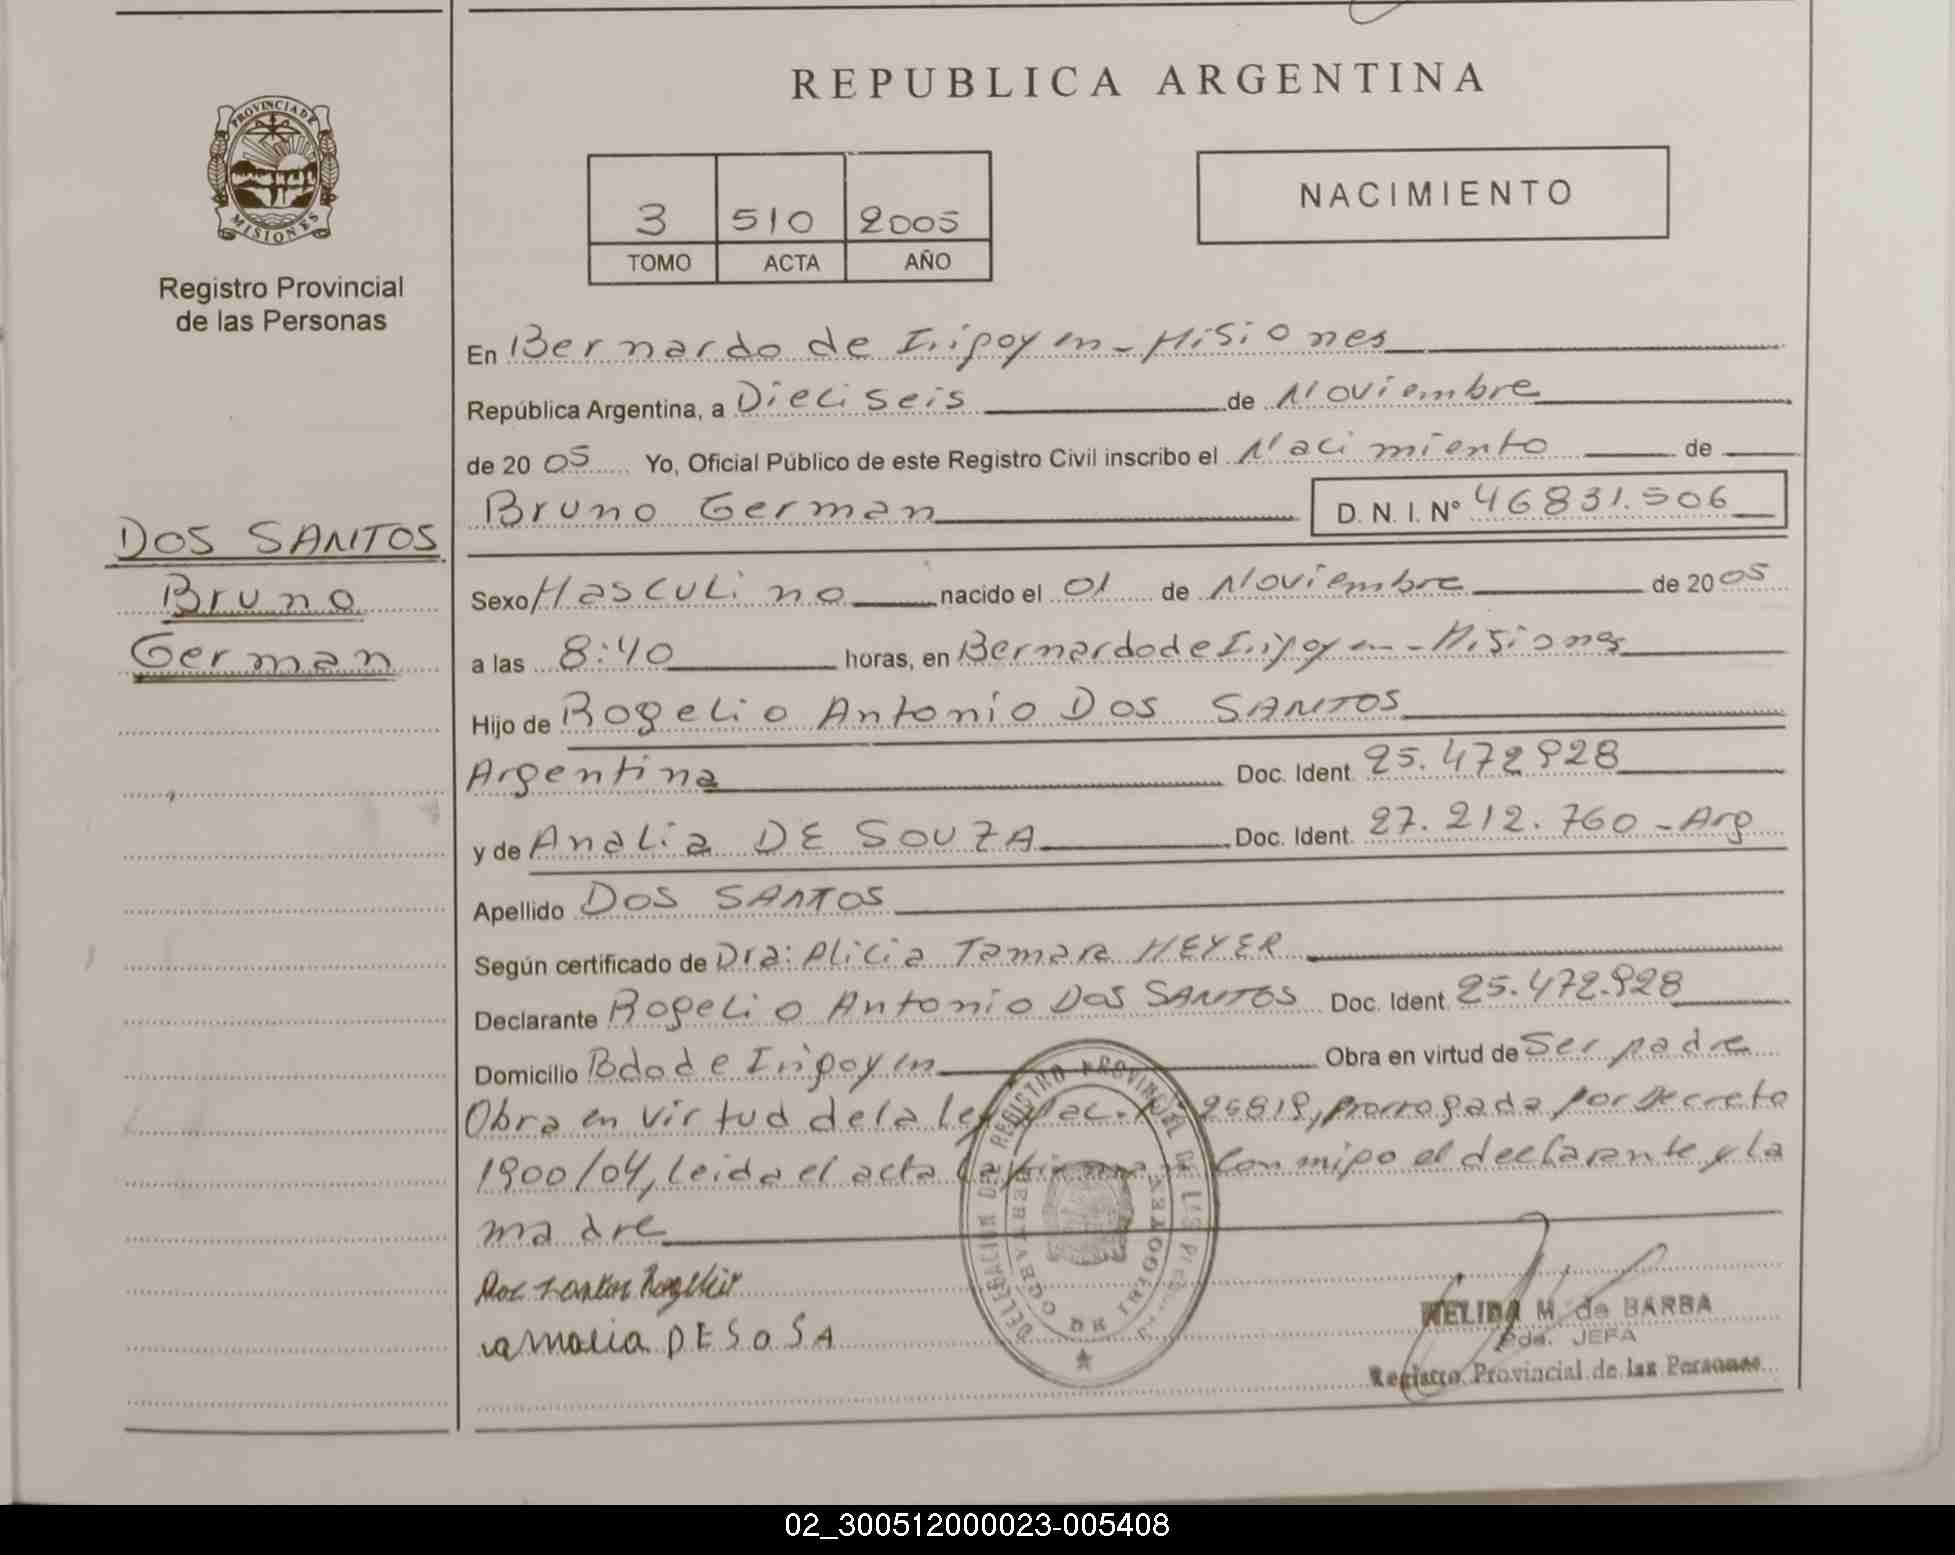 REPUBLICA ARGENTINA
PROVINCIA DE
MISIONES
Registro Provincial
de las Personas
3 510 2005
TOMO ACTA AÑO
NACIMIENTO
En Bernardo de Irigoyen - Misiones
República Argentina, a Dieciseis de Noviembre
de 20 05 Yo, Oficial Público de este Registro Civil inscribo el Nacimiento de
Bruno German D.N.I. Nº 46831.506
DOS SANTOS
Bruno
German
Sexo Masculino nacido el 01 de Noviembre de 20 05
a las 8:40 horas, en Bernardo de Irigoyen - Misiones
Hijo de Rogelio Antonio Dos SANTOS
Argentina Doc. Ident. 25.472.928
y de Analia DE SOUZA Doc. Ident. 27.212.760 - Arg
Apellido DOS SANTOS
Según certificado de Dra: Alicia Tamara MEYER
Declarante Rogelio Antonio Dos SANTOS Doc. Ident. 25.472.928
Domicilio Bdo de Irigoyen Obra en virtud de Ser padre
Obra en virtud de la Ley Nac. Nº 25819, prorrogada por Decreto
1900/04, leida el acta la firman conmigo el declarante y la
madre
DE SOSA
REGISTRO PROVINCIAL DE LAS
NELIDA M. de BARBA
JEFA
Registro Provincial de las Personas
02_300512000023-005408